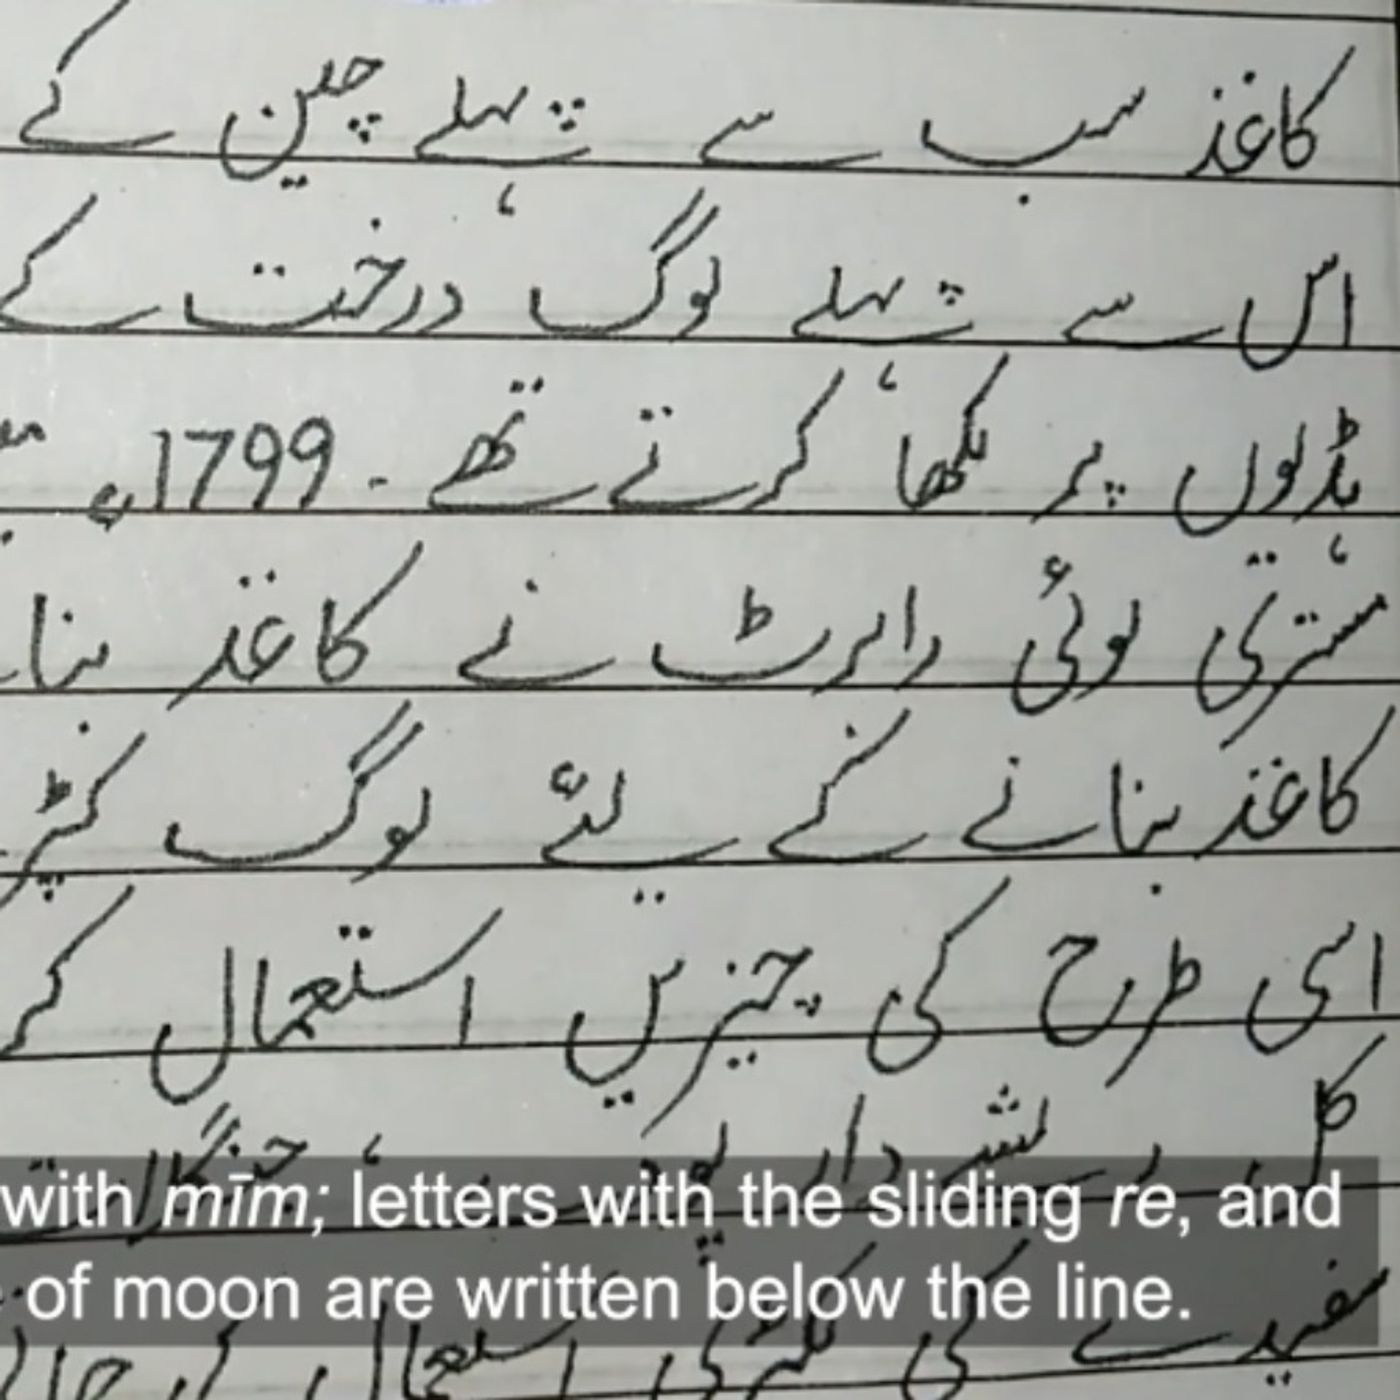 کاغذ سب سے پہلے چین کے
اس سے پہلے لوگ درخت کے
ہڈیوں پر لکھا کرتے تھے ۔ 1799ء
مستری لوئی رابرٹ نے کاغذ بنا
کاغذ بنانے کے لئے لوگ
اسی طرح کی چیزیں استعمال کر
with mīm; letters with the sliding re, and
of moon are written below the line.
سفیدے کی لکڑی استعمال کی جاتی